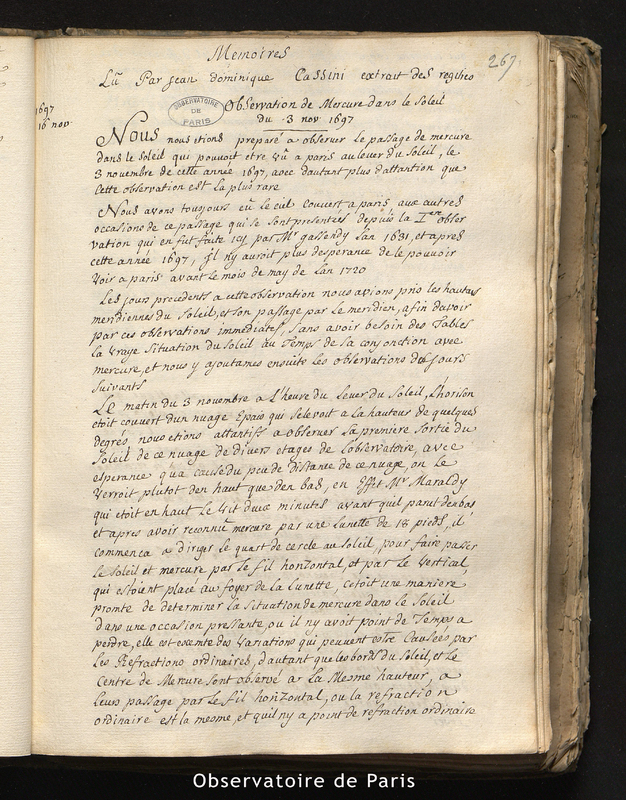 Memoires
267.
Lû Par Jean dominique Cassini extrait des regitres
1697
16 nov
OBSERVATOIRE
DE
PARIS
Observation de Mercure dans le Soleil
du 3 nov 1697
Nous nous etions preparé a observer le passage de mercure
dans le Soleil qui pouvoit etre vû a paris au lever du Soleil, le
3 novembre de cette année 1697, avec dautant plus dattantion que
Cette observation est la plus rare
Nous avons toujours eû le ciel couvert a paris aux autres
occasions de ce passage qui se sont presentées depuis la Iere obser
vation qui en fut faite icy par Mr gassendy Lan 1631, et apres
cette année 1697, Jl ny auroit plus desperance de le pouvoir
voir a paris avant le mois de may de Lan 1720
Les jours precedents a cette observation nous avions pris les hauteurs
meridiennes du Soleil, et son passage par le meridien, afin davoir
par ces observations immediates, sans avoir besoin des Tables
la vraye Situation du Soleil au Temps de sa conjonction avec
mercure, et nous y ajoutames ensuite les observations des Jours
suivants
Le matin du 3 novembre a L'heure du lever du Soleil, L'horison
etoit couvert dun nuage Epais qui selevoit a la hauteur de quelques
degrés, nous etions attantifs a observer sa premiere sortie du
Soleil de ce nuage de divers etages de Lobservatoire, avec
esperance qu'a cause du peu de distance de ce nuage, on le
verroit plutot den haut que den bas, en Effet Mr Maraldy
qui etoit en haut le vit deux minutes avant quil parut den bas
et apres avoir reconnu mercure par une Lunette de 18 pieds, il
commenca a diriger le quart de cercle au Soleil, pour faire passer
le Soleil et mercure par le fil horizontal, et par le vertical,
qui estoient placé au foyer de la Lunette, cetoit une maniere
promte de determiner la situation de mercure dans le Soleil
dans une occasion pressante, ou il ny avoit point de Temps a
perdre, elle est exemte des variations qui peuvent estre causées par
les Refractions ordinaires, d'autant que les bords du Soleil, et le
Centre de Mercure sont observé a la Mesme hauteur, a
leurs passage par le fil horizontal, ou la refraction
ordinaire est la mesme, et quil ny a point de refraction ordinaire
Observatoire de Paris